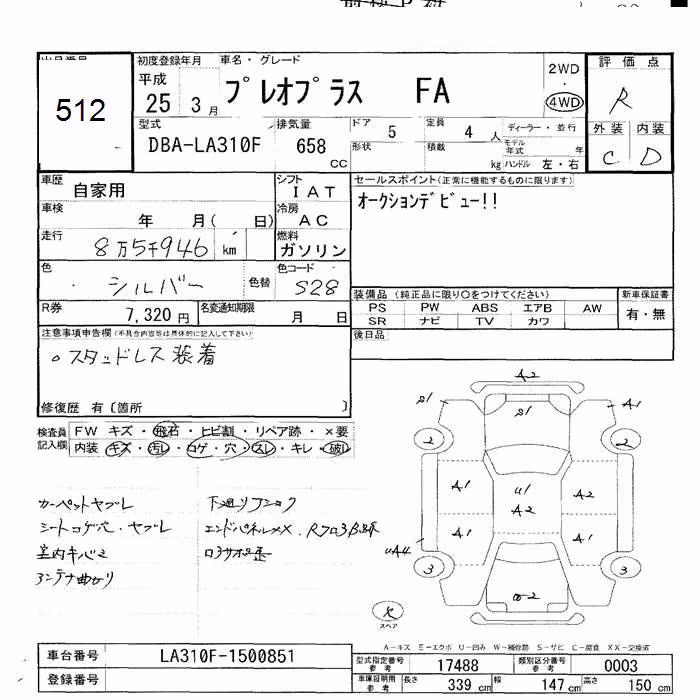 出品番号
512
初度登録年月 車名・グレード
平成
25 3月
プレオプラス FA
2WD
・
4WD
評価点
R
外装 内装
C D
型式
DBA-LA310F
排気量
658
CC
ドア 5
形状
定員 4人
積載 kg
ディーラー・並行
モデル年式 年
ハンドル 左・右
車歴
自家用
シフト
IAT
車検
年 月( 日)
冷房
AC
走行
8万5千946 km
燃料
ガソリン
色
シルバー
色替
色コード
S28
R券
7,320円
名変通知期限
月 日
セールスポイント(正常に機能するものに限ります)
オークションデビュー!!
装備品 (純正品に限り○をつけてください)
PS PW ABS エアB AW
SR ナビ TV カワ
新車保証書
有・無
後日品
注意事項申告欄(不具合内容等は具体的に記入して下さい)
○スタッドレス装着
修復歴 有〔箇所 〕
検査員記入欄
FW キズ・飛石・ヒビ割・リペア跡・×要
内装 キズ・汚レ・コゲ・穴・スレ・キレ・破レ
カーペットヤブレ
シートコゲ穴・ヤブレ
室内キバミ
アンテナ曲がり
下廻りフショク
A2
S1
S1
A1
2
2
A1
U1
A2
A2
A1
A1
UA4
3
3
W2
スペア
A-キズ E-エクボ U-凹み W-補修跡 S-サビ C-腐食 XX-交換済
車台番号
LA310F-1500851
登録番号
型式指定番号
参考
17488
類別区分番号
参考
0003
車庫証明用
参考
長さ 339 cm
幅 147 cm
高さ 150 cm